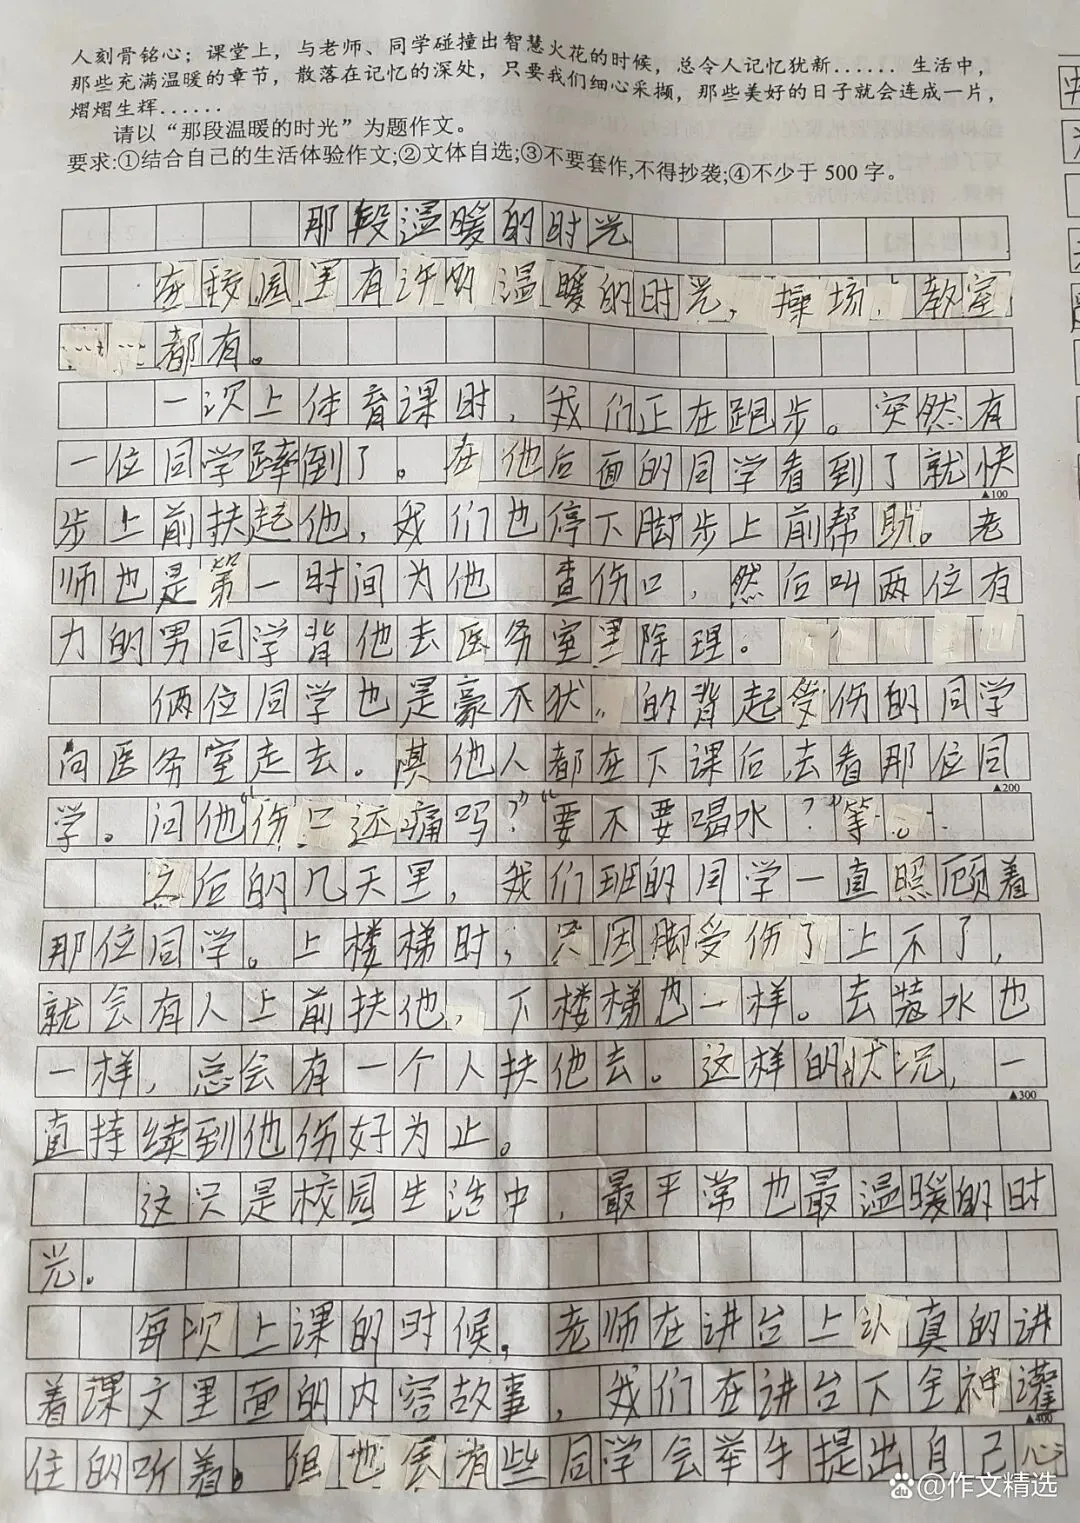 人刻骨铭心；课堂上，与老师、同学碰撞出智慧火花的时候，总令人记忆犹新……生活中，
那些充满温暖的章节，散落在记忆的深处，只要我们细心采撷，那些美好的日子就会连成一片，
熠熠生辉……
请以“那段温暖的时光”为题作文。
要求:①结合自己的生活体验作文;②文体自选;③不要套作,不得抄袭;④不少于500字。
那段温暖的时光
在校园里有许多温暖的时光，操场、教室
……都有。
一次上体育课时，我们正在跑步。突然有
一位同学蹿倒了。在他后面的同学看到了就快
▲100
步上前扶起他，我们也停下脚步上前帮助。老
师也是第一时间为他查伤口，然后叫两位有
力的男同学背他去医务室里除理。
俩位同学也是豪不犹。的背起受伤的同学
向医务室走去。其他人都在下课后去看那位同
▲200
学。问他“伤口还痛吗？”“要不要喝水？”等。
之后的几天里，我们班的同学一直照顾着
那位同学。上楼梯时，只因脚受伤了上不了，
就会有人上前扶他，下楼梯也一样。去装水也
一样，总会有一个人扶他去。这样的状况，一
▲300
直持续到他伤好为止。
这只是校园生活中，最平常也最温暖的时
光。
每次上课的时候，老师在讲台上认真的讲
着课文里面的内容故事，我们在讲台下全神灌
▲400
住的听着。但也会有些同学会举手提出自己心
@作文精选